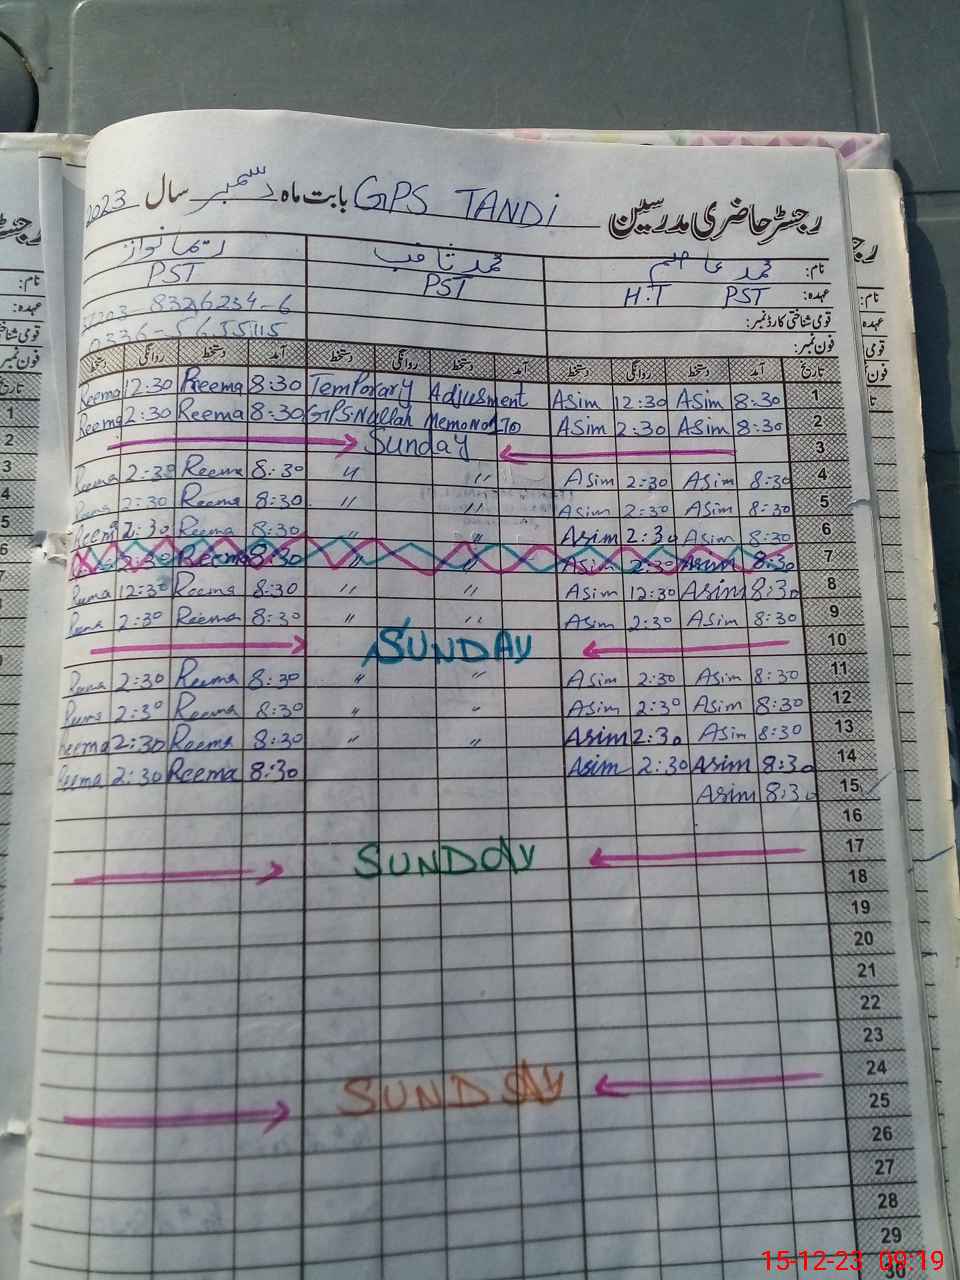 رجسٹر حاضری مدرسین GPS TANDi بابت ماہ دسمبر سال 2023
نام: محمد عاصم محمد ثاقب ریما نواز
عہدہ: PST H.T PST PST
قومی شناختی کارڈ نمبر: 8326234-6
فون نمبر:
تاریخ آمد دستخط روانگی دستخط آمد دستخط روانگی دستخط آمد دستخط روانگی دستخط
Reema 12:30 Reema 8:30 Temporary Adjusment Asim 12:30 Asim 8:30 1
Reema 2:30 Reema 8:30 GPS Nallah Memo No Asim 2:30 Asim 8:30 2
Sunday 3
Reema 2:30 Reema 8:30 " " Asim 2:30 Asim 8:30 4
Reema 2:30 Reema 8:30 " " Asim 2:30 Asim 8:30 5
Reema 2:30 Reema 8:30 " " Asim 2:30 Asim 8:30 6
2:30 Reema 8:30 " " Asim 2:30 Asim 8:30 7
Reema 12:30 Reema 8:30 " " Asim 12:30 Asim 8:30 8
Reema 2:30 Reema 8:30 " " Asim 2:30 Asim 8:30 9
SUNDAY 10
Reema 2:30 Reema 8:30 " " Asim 2:30 Asim 8:30 11
Reema 2:30 Reema 8:30 " " Asim 2:30 Asim 8:30 12
Reema 2:30 Reema 8:30 " " Asim 2:30 Asim 8:30 13
Reema 2:30 Reema 8:30 Asim 2:30 Asim 8:30 14
Asim 8:30 15
16
SUNDAY 17
18
19
20
21
22
23
SUNDAY 24
25
26
27
28
29
30
15-12-23 09:19